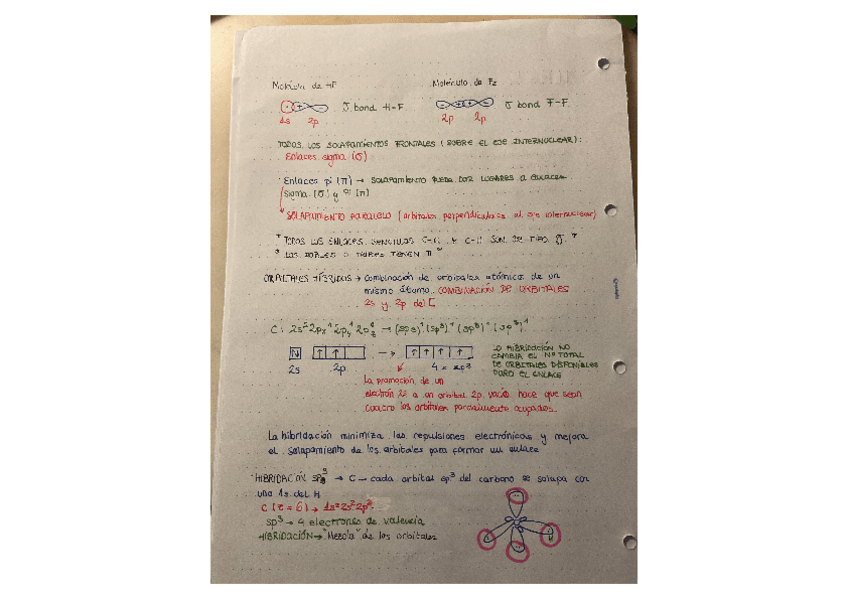 Molécula de HF
Molécula de F2
1s 2p
σ bond H-F
2p 2p
σ bond F-F
TODOS LOS SOLAPAMIENTOS FRONTALES (SOBRE EL EJE INTERNUCLEAR):
Enlaces sigma (σ)
Enlaces pi (π) → SOLAPAMIENTO PUEDE DAR LUGARES A ENLACES
sigma (σ) y (π)
SOLAPAMIENTO PARALELO (orbitales perpendiculares al eje internuclear)
* TODOS LOS ENLACES SENCILLOS C-C y C-H SON DE TIPO σ
LOS DOBLES O TRIPLES TIENEN π
ORBITALES HÍBRIDOS → Combinación de orbitales atómicos de un
mismo átomo. COMBINACIÓN DE ORBITALES
2s y 2p del C
C: 2s² 2px¹ 2py¹ 2pz⁰ → (sp3)¹ (sp³)¹ (sp³)¹ (sp³)¹
2s 2p 4 = sp³
LA HIBRIDACIÓN NO
CAMBIA EL Nº TOTAL
DE ORBITALES DISPONIBLES
PARA EL ENLACE
La promoción de un
electrón 2s a un orbital 2p vacío hace que sean
cuatro los orbitales parcialmente ocupados.
La hibridación minimiza las repulsiones electrónicas y mejora
el solapamiento de los orbitales para formar un enlace
HIBRIDACIÓN sp³ → C — cada orbital sp³ del carbono se solapa con
uno 1s del H
C (z = 6) → 1s² 2s² 2p²
sp³ → 4 electrones de valencia
HIBRIDACIÓN → "Mezcla" de los orbitales